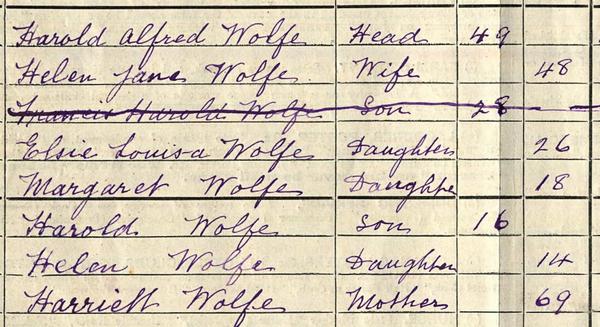 Harold Alfred Wolfe Head 49
Helen Jane Wolfe Wife 48
Francis Harold Wolfe Son 28
Elsie Louisa Wolfe Daughter 26
Margaret Wolfe Daughter 18
Harold Wolfe Son 16
Helen Wolfe Daughter 14
Harriett Wolfe Mother 69